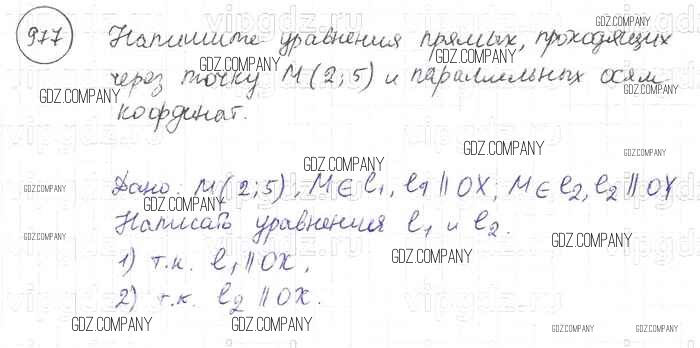 977 Напишите уравнения прямых, проходящих
через точку M(2;5) и параллельных осям
координат.
Дано: M(2;5), M∈ℓ₁, ℓ₁ || OX, M∈ℓ₂, ℓ₂ || OY
Написать уравнения ℓ₁ и ℓ₂.
1) т.к. ℓ₁ || OX,
2) т.к. ℓ₂ || OX.
GDZ.COMPANY
GDZ.COMPANY
GDZ.COMPANY
GDZ.COMPANY
GDZ.COMPANY
GDZ.COMPANY
GDZ.COMPANY
GDZ.COMPANY
GDZ.COMPANY
GDZ.COMPANY
GDZ.COMPANY
GDZ.COMPANY
GDZ.COMPANY